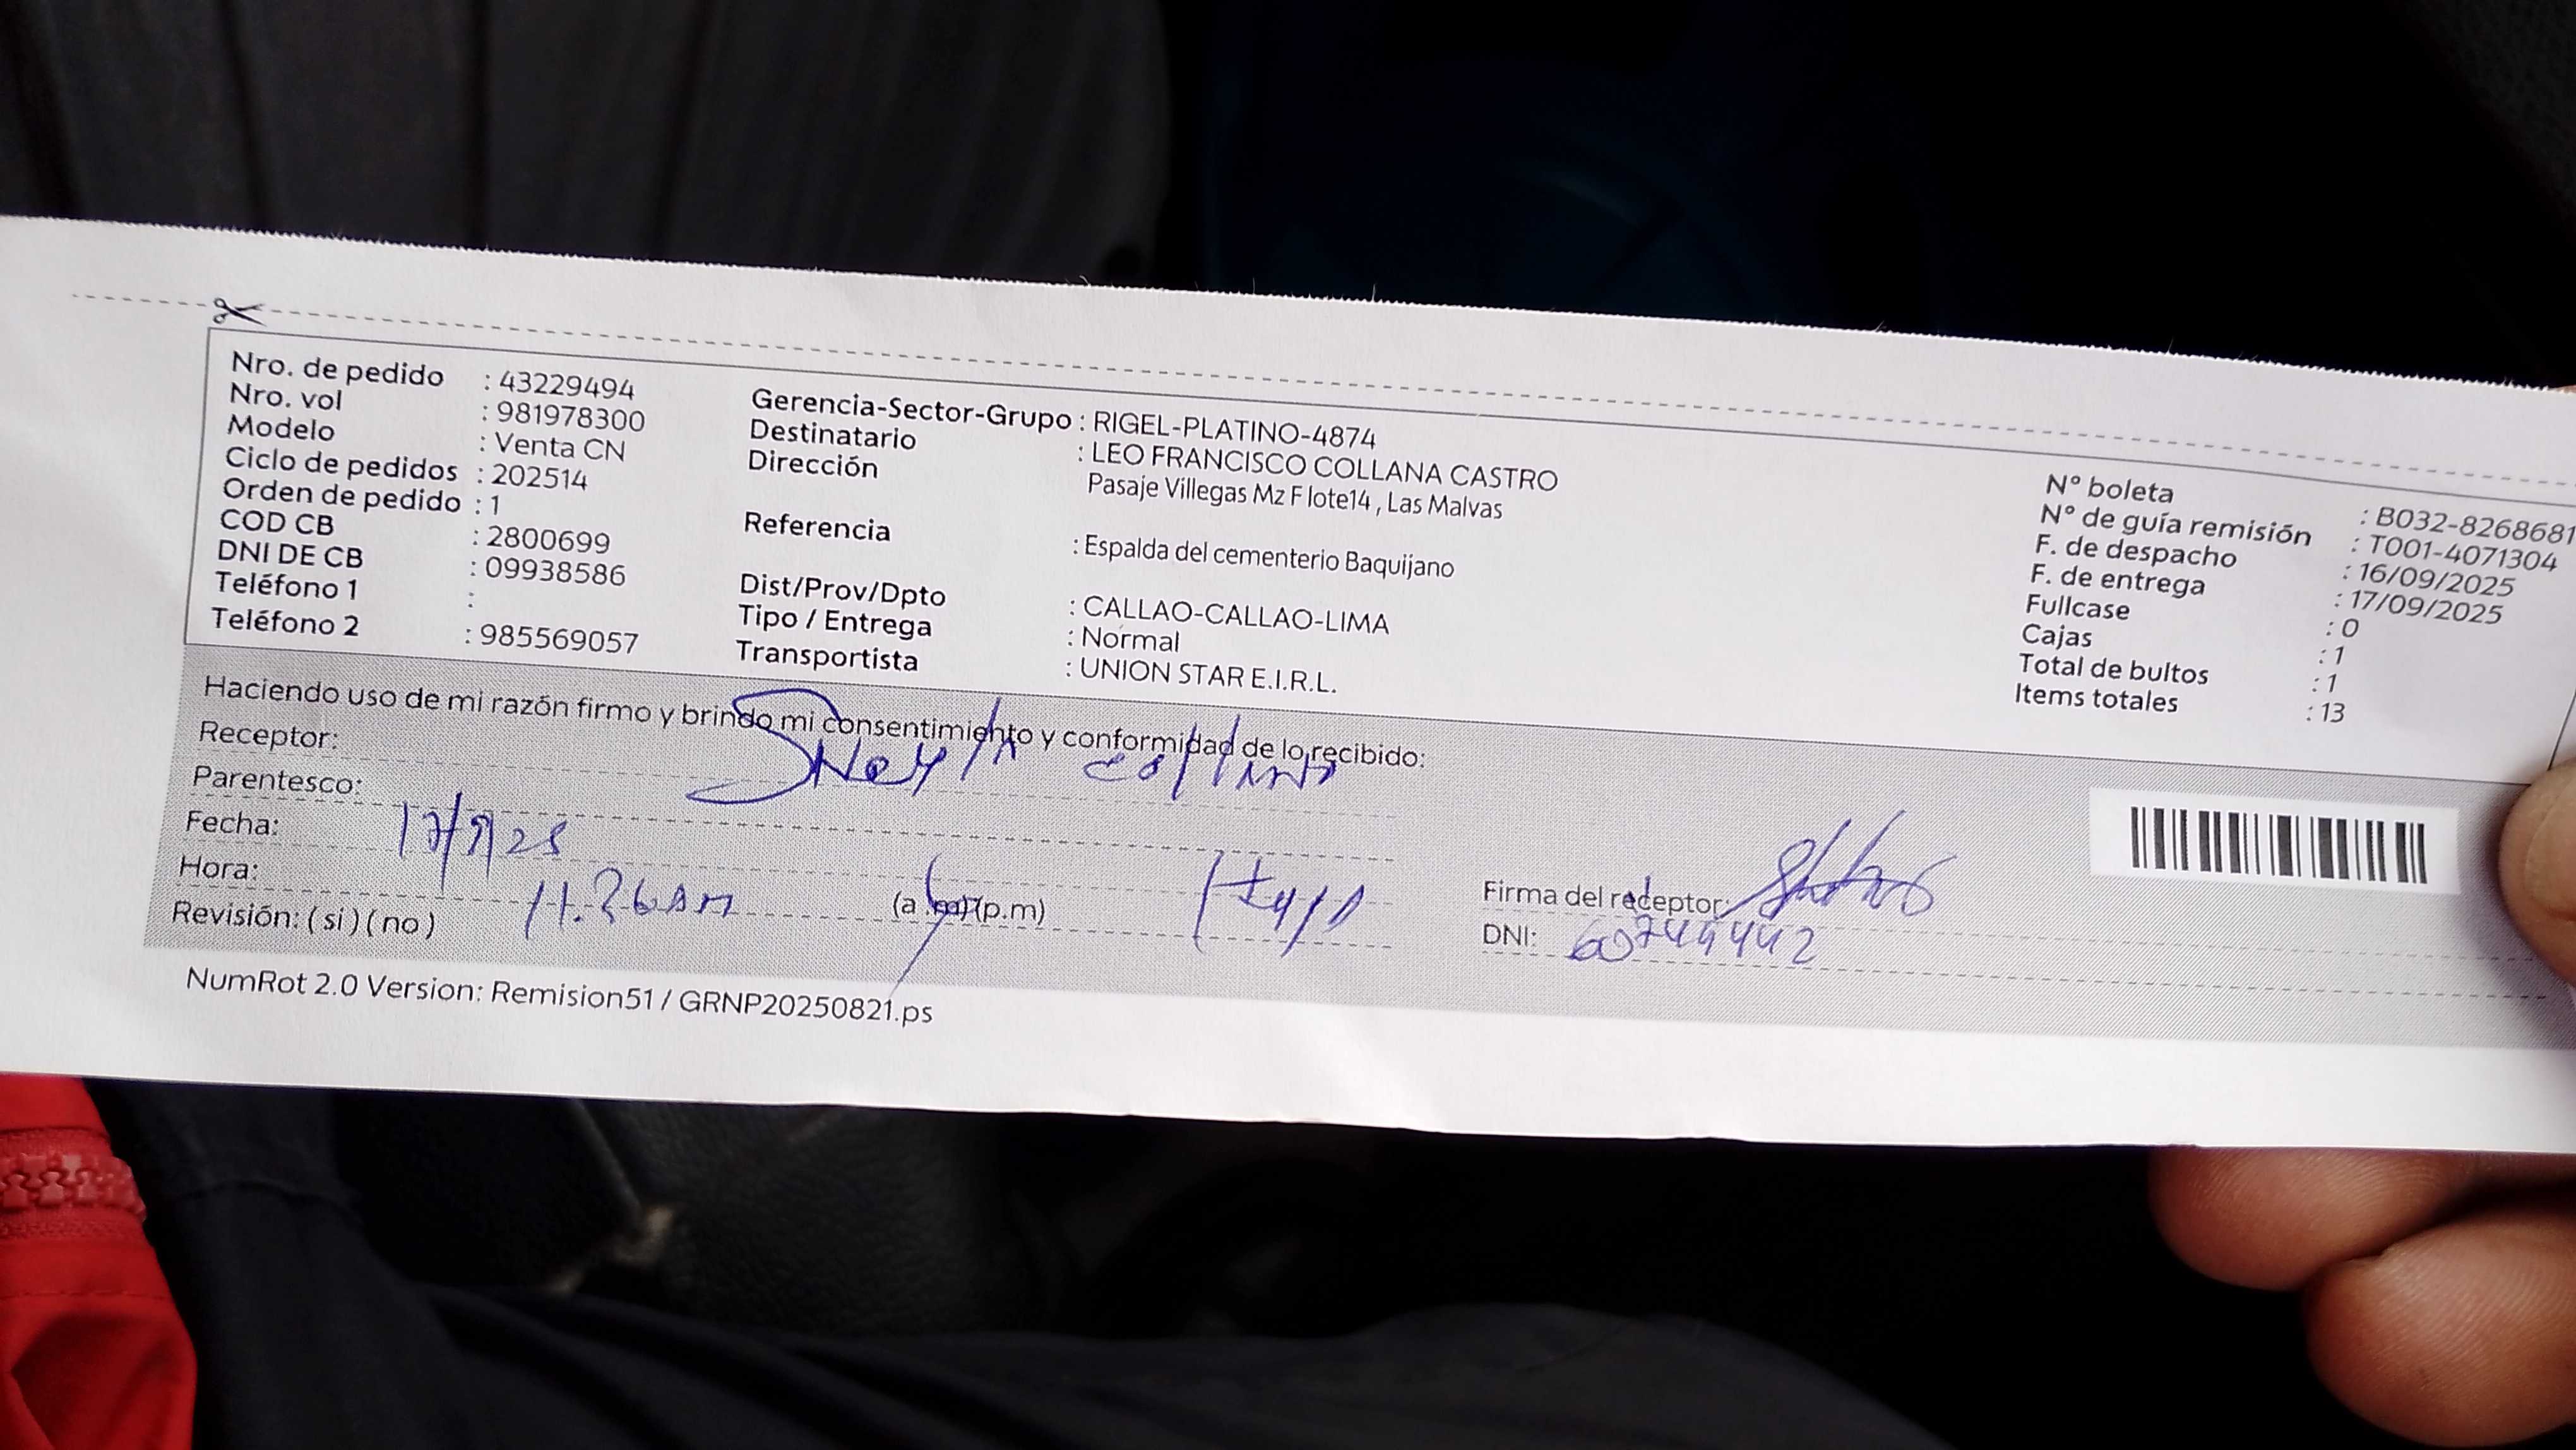 Nro. de pedido : 43229494
Nro. vol : 981978300
Modelo : Venta CN
Ciclo de pedidos : 202514
Orden de pedido : 1
COD CB : 2800699
DNI DE CB : 09938586
Teléfono 1 :
Teléfono 2 : 985569057
Gerencia-Sector-Grupo : RIGEL-PLATINO-4874
Destinatario : LEO FRANCISCO COLLANA CASTRO
Dirección Pasaje Villegas Mz F lote14 , Las Malvas
Referencia : Espalda del cementerio Baquijano
Dist/Prov/Dpto : CALLAO-CALLAO-LIMA
Tipo / Entrega : Normal
Transportista : UNION STAR E.I.R.L.
N° boleta : B032-8268681
N° de guía remisión : T001-4071304
F. de despacho : 16/09/2025
F. de entrega : 17/09/2025
Fullcase : 0
Cajas : 1
Total de bultos : 1
Items totales : 13
Haciendo uso de mi razón firmo y brindo mi consentimiento y conformidad de lo recibido:
Receptor:
Parentesco:
Fecha: 17/9/25
Hora: 11.26 AM (a.m)(p.m)
Revisión: ( si ) ( no )
Firma del receptor:
DNI: 60744442
NumRot 2.0 Version: Remision51 / GRNP20250821.ps